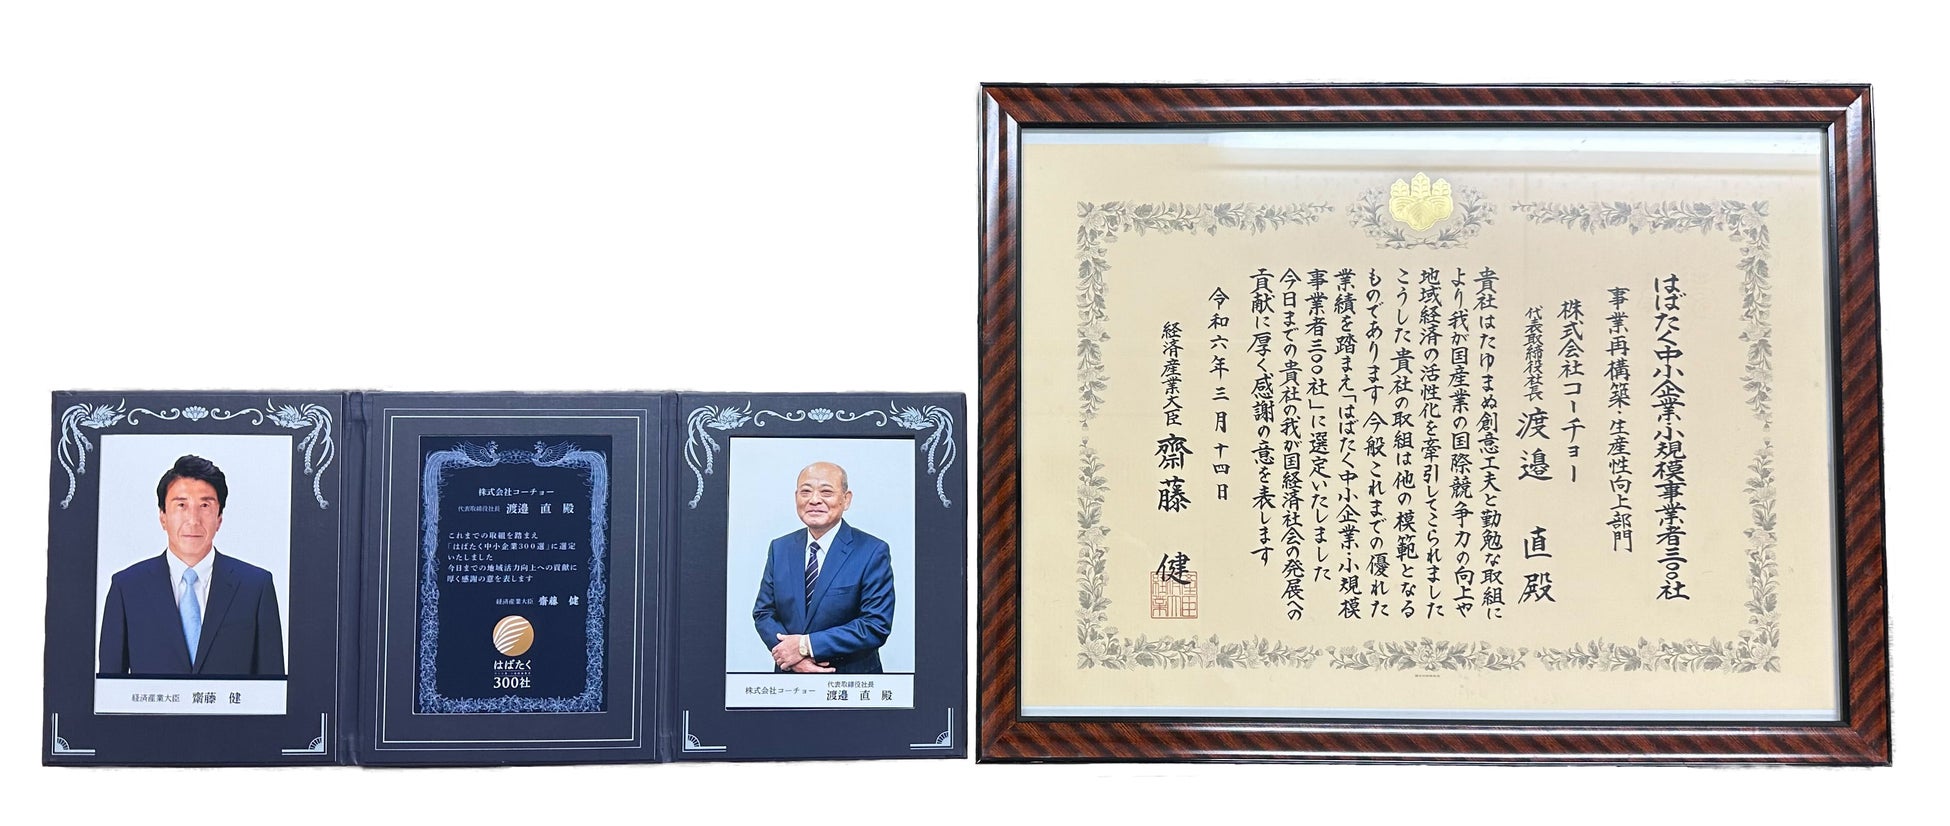 経済産業大臣 齋藤 健
株式会社コーチョー
代表取締役社長 渡邉 直 殿
これまでの取組を踏まえ
「はばたく中小企業300選」に選定
いたしました
今日までの地域活力向上への貢献に
厚く感謝の意を表します
経済産業大臣 齋藤 健
はばたく
300社
株式会社コーチョー
代表取締役社長
渡邉 直 殿
はばたく中小企業・小規模事業者三〇〇社
事業再構築・生産性向上部門
株式会社コーチョー
代表取締役社長 渡邉 直 殿
貴社はたゆまぬ創意工夫と勤勉な取組に
より我が国産業の国際競争力の向上や
地域経済の活性化を牽引してこられました
こうした貴社の取組は他の模範となる
ものであります 今般これまでの優れた
業績を踏まえ「はばたく中小企業・小規模
事業者三〇〇社」に選定いたしました
今日までの貴社の我が国経済社会の発展への
貢献に厚く感謝の意を表します
令和六年三月十四日
経済産業大臣 齋藤 健